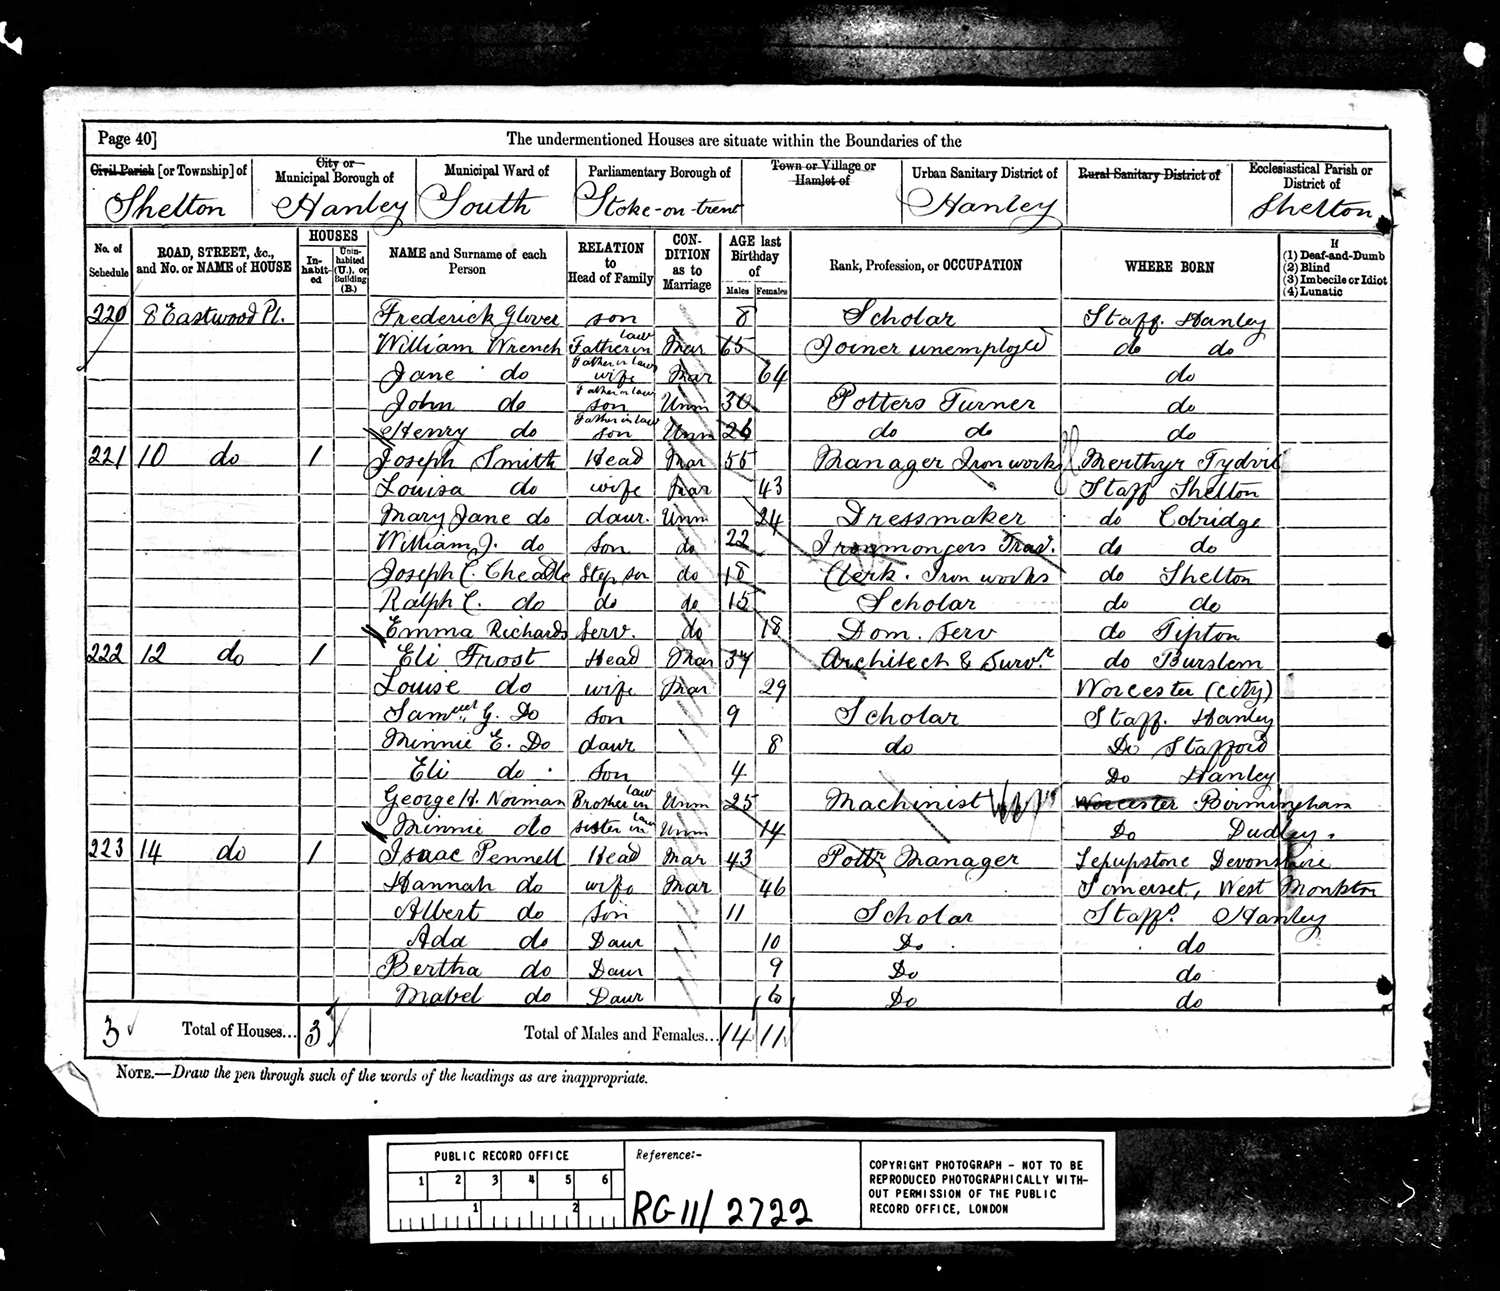 Page 40] The undermentioned Houses are situate within the Boundaries of the
Civil Parish [or Township] of City or Municipal Borough of Municipal Ward of Parliamentary Borough of Town or Village or Hamlet of Urban Sanitary District of Rural Sanitary District of Ecclesiastical Parish or District of
Shelton Hanley South Stoke-on-trent Hanley Shelton
No. of Schedule ROAD, STREET, &c., and No. or NAME of HOUSE HOUSES In-habit-ed Unin-habited (U.), or Building (B.) NAME and Surname of each Person RELATION to Head of Family CON-DITION as to Marriage AGE last Birthday of Males Females Rank, Profession, or OCCUPATION WHERE BORN If (1) Deaf-and-Dumb (2) Blind (3) Imbecile or Idiot (4) Lunatic
220 8 Eastwood Pl. Frederick Glover son 8 Scholar Staff. Hanley
William Wrench Father in law Mar 65 Joiner unemployed do do
Jane do Father in laws wife Mar 64 do
John do Father in law son Unm 30 Potters Turner do
Henry do Father in law son Unm 26 do do do
221 10 do 1 Joseph Smith Head Mar 55 Manager Iron works Merthyr Tydvil
Louisa do wife Mar 43 Staff Shelton
Mary Jane do daur. Unm 24 Dressmaker do Cobridge
William J. do son do 22 Ironmongers Trav. do do
Joseph C. Cheadle Step son do 18 Clerk. Iron works do Shelton
Ralph C. do do do 15 Scholar do do
Emma Richards Serv. do 18 Dom. Serv do Tipton
222 12 do 1 Eli Frost Head Mar 37 Architech & Survr. do Burslem
Louise do wife Mar 29 Worcester (city)
Samuel G. Do son 9 Scholar Staff. Hanley
Minnie E. Do daur 8 do Do Stafford
Eli do son 4 Do Hanley
George H. Norman Brother in law Unm 25 Machinist Worcester Birmingham
Minnie do sister in law Unm 14 Do Dudley.
223 14 do 1 Isaac Pennell Head Mar 43 Pottr Manager Devonshire
Hannah do wife Mar 46 Somerset, West Monkton
Albert do son 11 Scholar Staffs. Hanley
Ada do Daur 10 Do do
Bertha do Daur 9 Do do
Mabel do Daur 6 Do do
3 Total of Houses... 3 Total of Males and Females... 14 11
NOTE.—Draw the pen through such of the words of the headings as are inappropriate.
PUBLIC RECORD OFFICE
1 2 3 4 5 6
1 2
Reference:-
RG 11/2722
COPYRIGHT PHOTOGRAPH - NOT TO BE
REPRODUCED PHOTOGRAPHICALLY WITH-
OUT PERMISSION OF THE PUBLIC
RECORD OFFICE, LONDON